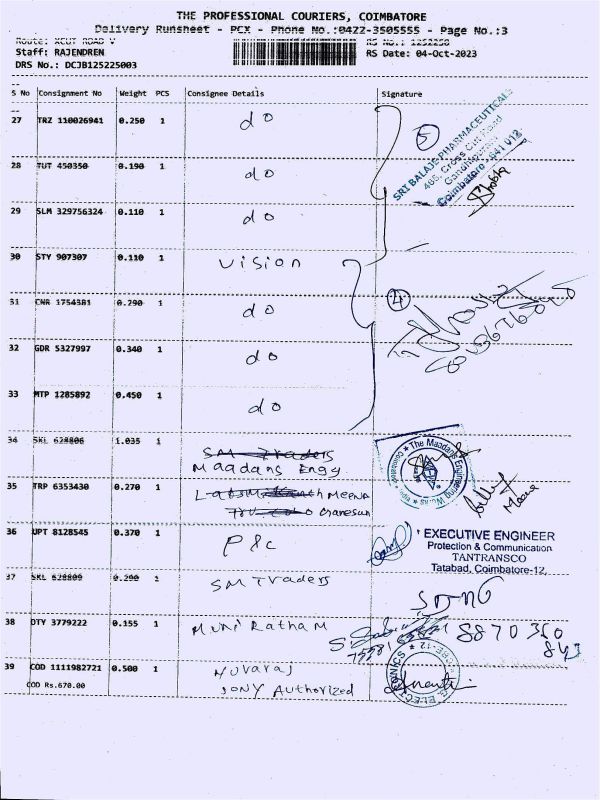 THE PROFESSIONAL COURIERS, COIMBATORE
Delivery Runsheet - PCX - Phone No.:0422-3505555 - Page No.:3
Route: XCUT ROAD V RS No.: 1252250
Staff: RAJENDREN RS Date: 04-Oct-2023
DRS No.: DCJB125225003
S No Consignment No Weight PCS Consignee Details Signature
27 TRZ 110026941 0.250 1 do
5
SRI BALAJE PHARMACEUTICALS
485, Cross Cut Road
Gandhipuram
Coimbatore - 641 012
28 TUT 450350 0.190 1 do
29 SLM 329756324 0.110 1 do
30 STY 907307 0.110 1 vision
31 CNR 1754381 0.290 1 do
4
32 GDR 5327997 0.340 1 do
33 MTP 1285892 0.450 1 do
34 SKL 628806 1.035 1 SM Traders
Maadans Engg.
The Maadans Engineering Works
35 TRP 6353430 0.270 1 MEENA
Meena
36 UPT 8128545 0.370 1 P&c
EXECUTIVE ENGINEER
Protection & Communication
TANTRANSCO
Tatabad, Coimbatore-12.
37 SKL 628809 0.290 1 SM Traders
38 DTY 3779222 0.155 1 Muni Ratham
8870350
843
39 COD 1111982721 0.500 1 Yuvaraj
COD Rs.670.00 SONY Authorized
ELECTRONICS